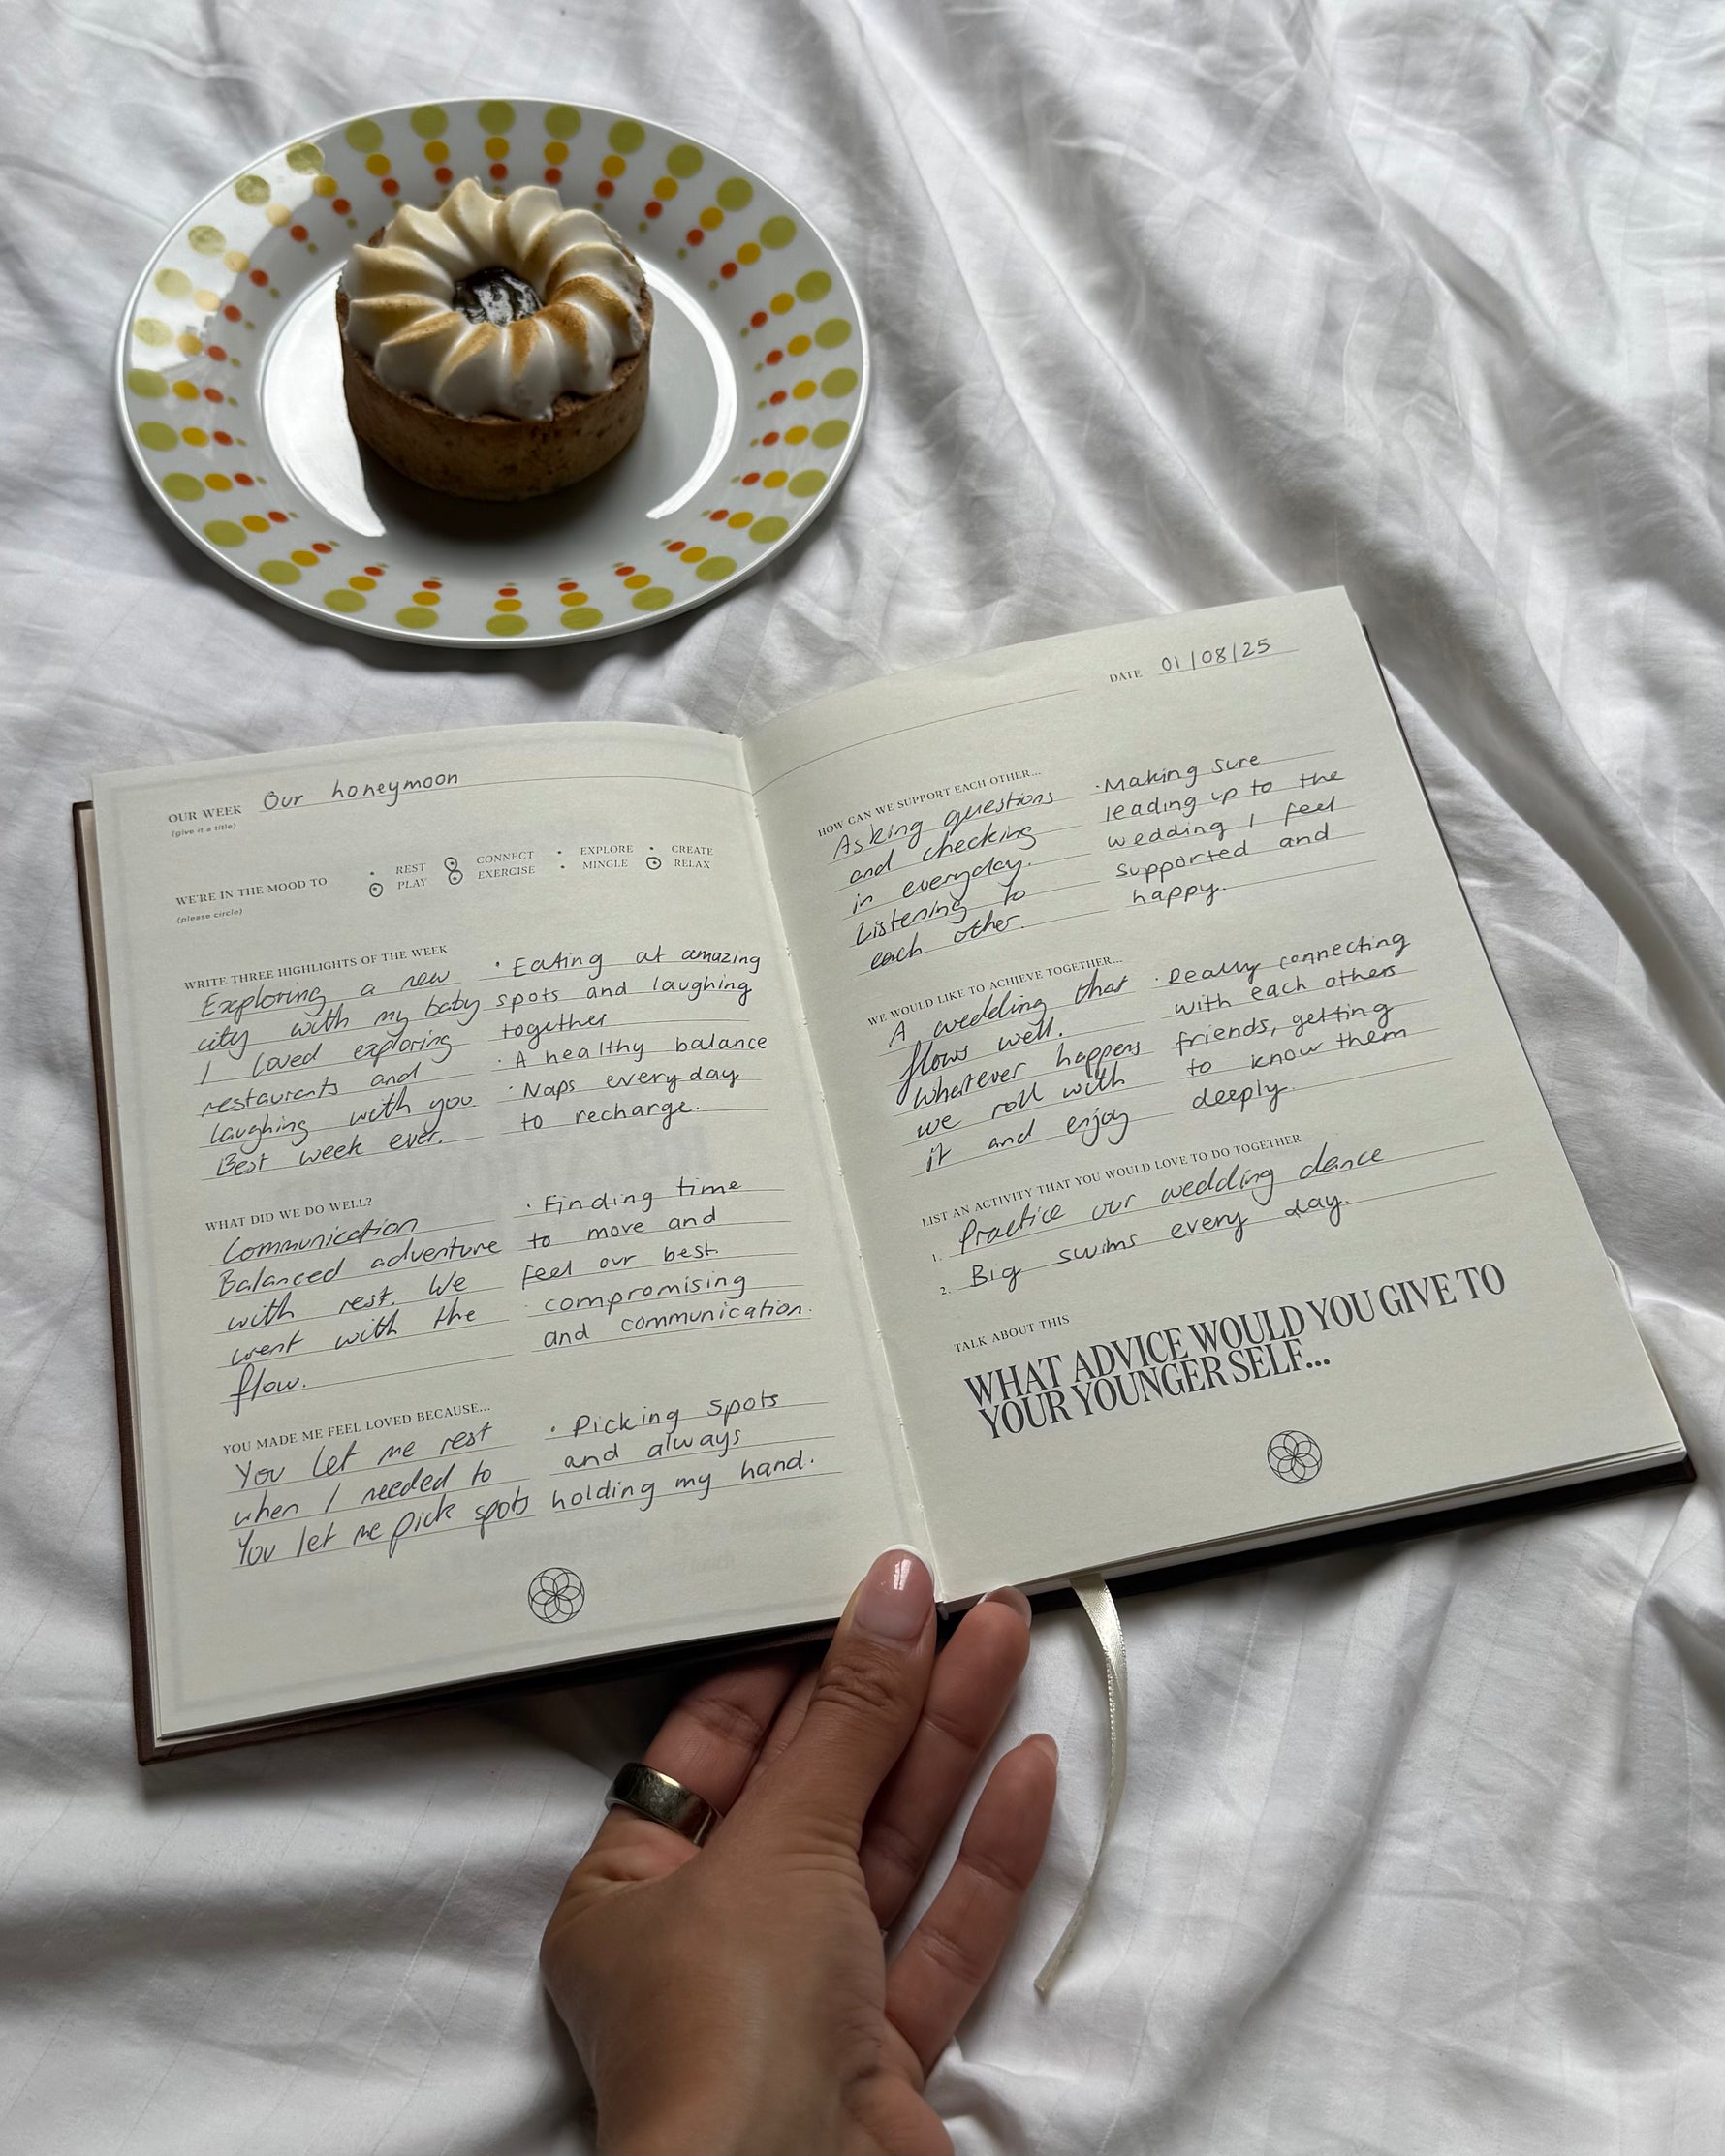 OUR WEEK Our honeymoon
(give it a title)
WE'RE IN THE MOOD TO
(please circle)
REST CONNECT EXPLORE CREATE
PLAY EXERCISE MINGLE RELAX
WRITE THREE HIGHLIGHTS OF THE WEEK
Exploring a new
city with my baby
I loved exploring
restaurants and
laughing with you.
Best week ever.
· Eating at amazing
spots and laughing
together
· A healthy balance
· Naps everyday
to recharge.
WHAT DID WE DO WELL?
Communication
Balanced adventure
with rest. We
went with the
flow.
· Finding time
to move and
feel our best.
· compromising
and communication.
YOU MADE ME FEEL LOVED BECAUSE...
You let me rest
when I needed to
You let me pick spots
· Picking spots
and always
holding my hand.
DATE 01/08/25
HOW CAN WE SUPPORT EACH OTHER...
Asking questions
and checking
in everyday.
Listening to
each other.
·Making sure
leading up to the
wedding I feel
supported and
happy.
WE WOULD LIKE TO ACHIEVE TOGETHER...
A wedding that
flows well.
Whatever happens
we roll with
it and enjoy
· Really connecting
with each others
friends, getting
to know them
deeply.
LIST AN ACTIVITY THAT YOU WOULD LOVE TO DO TOGETHER
1. Practice our wedding dance
2. Big swims every day.
TALK ABOUT THIS
WHAT ADVICE WOULD YOU GIVE TO
YOUR YOUNGER SELF...